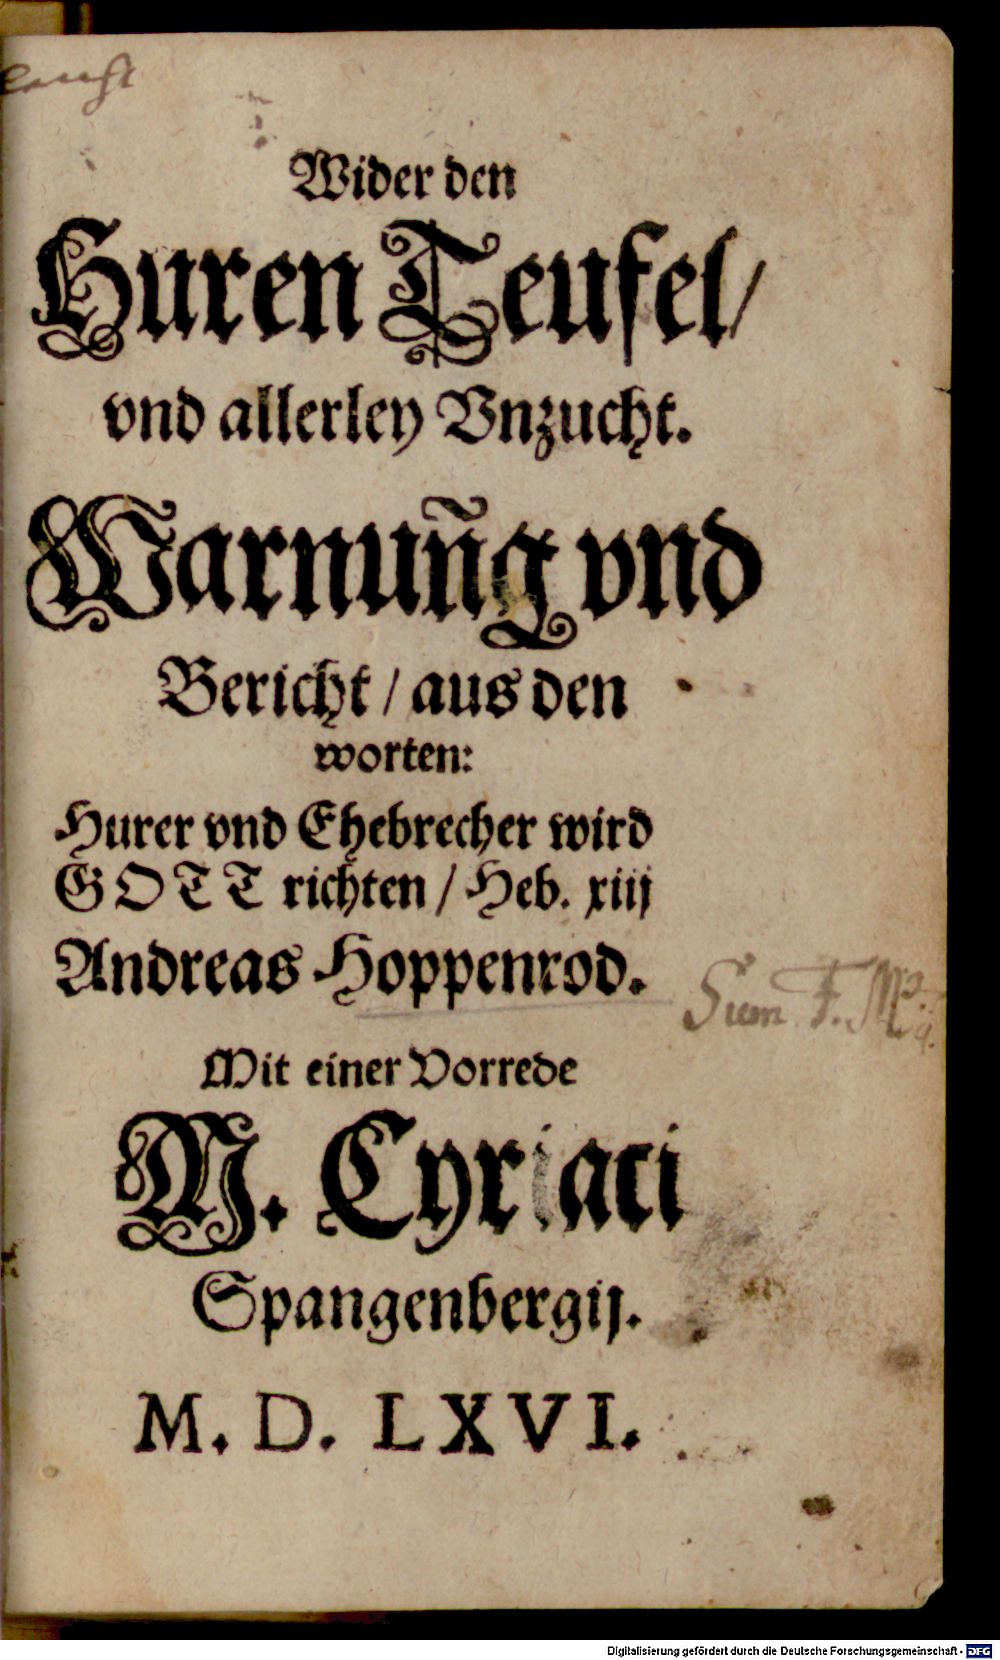 Wider den
Huren Teufel/
vnd allerley Vnzucht.
Warnun̄g vnd
Bericht / aus den
worten:
Hurer vnd Ehebrecher wird
GOTT richten / Heb. xiij
Andreas Hoppenrod.
Sum F.
Mit einer Vorrede
M. Cyriaci
Spangenbergij.
M. D. LXVI.
Digitalisierung gefördert durch die Deutsche Forschungsgemeinschaft - DFG